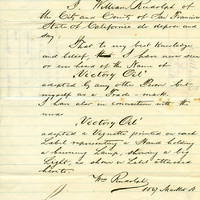 I, William Rudolph of
the City and County of San Francisco
State of California do depose and
say
That to my best knowledge
and belief, I have never seen
or ever heard of the Name of
"Victory Oil"
adopted by any other Person but
myself as a Trade mark.
I have also in connection with the
name
"Victory Oil"
adopted a Vignette printed on each
Label representing a Hand holding
a burning Lamp, showing a big
Light, as shown in Label attached
hereto.
Wm Rudolph